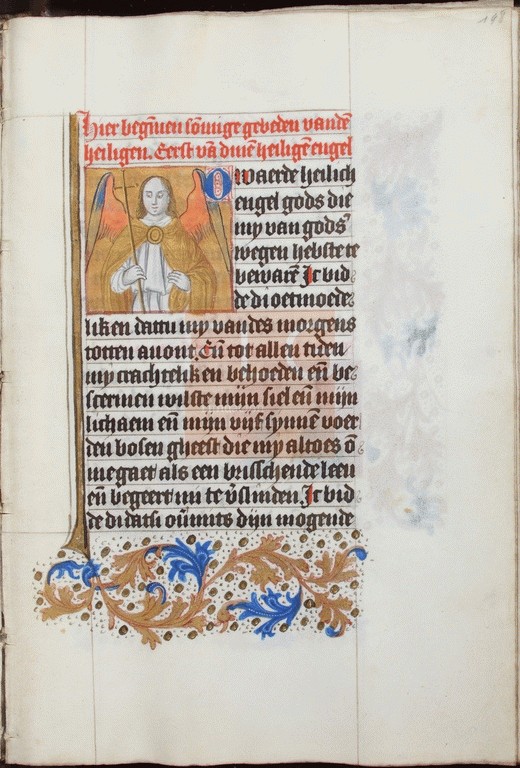 148
Hier beghīnen sōmige gebeden vandē
heiligen. Eerst vā dinē heiligē engel
O waerde heilich
engel gods die
my van gods
wegen hebste te
bewarē Ic bid
de di oetmoede
liken dattu my van des morgens
totten auont. Eñ tot allen tiden
my crachtelik en behoeden eñ be
scermen wilste mijn siel eñ mijn
lichaem eñ mijn vijf synnē voer
den bosen gheest die my altoes ō
me gaet als een briesschende leeu
eñ begeert mi te v̄slinden. Ic bid
de di datsi ou̅mits dijn mogende